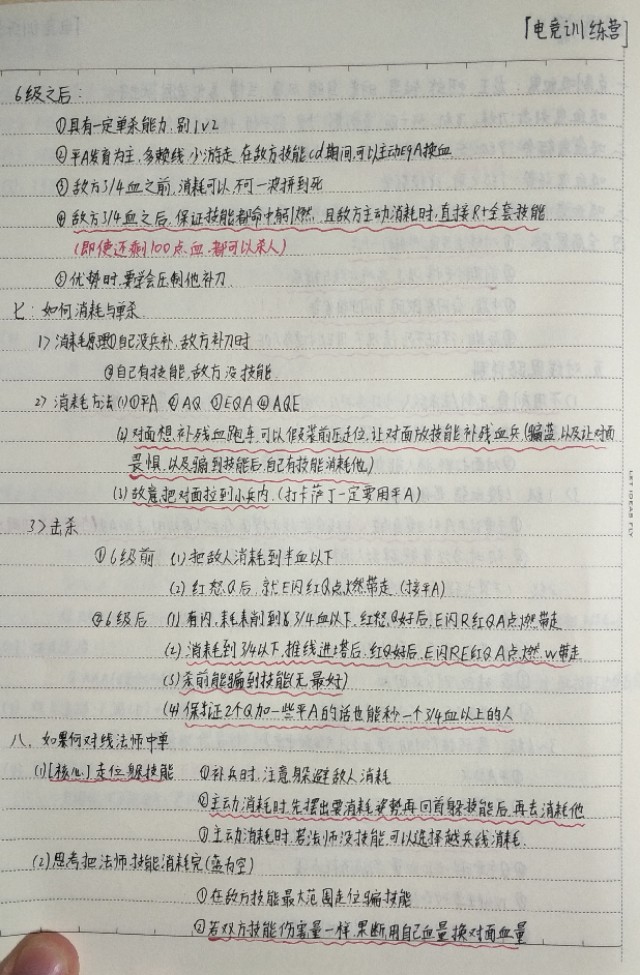 「电竞训练营」
6级之后:
①具有一定单杀能力,别1v2
②平A发育为主,多赖线,小游走.在敌方技能cd期间,可以主动EQA换血
③敌方3/4血之前,消耗可以,不可一波拼到死
④敌方3/4血之后,保证技能都命中躺引燃,且敌方主动消耗时,直接R+全套技能
(即使还剩100点血,都可以杀人)
⑤优势时,要学会压制他补刀.
七:如何消耗与单杀.
1>消耗原理①自己没兵补,敌方补刀时
②自己有技能,敌方没技能.
2>消耗方法(1)①平A ②AQ ③EQA ④AQE
(2)对面想补残血跑车,可以假装前压走位,让对面放技能补残血兵(骗蓝,以及让对面
畏惧,以及骗到技能后,自己有技能消耗他)
(3)故意把对面拉到小兵内.(打卡萨丁一定要用平A)
3>击杀
①6级前 (1)把敌人消耗到半血以下
(2)红怒Q后,就E闪红Q点燃带走.(接平A)
②6级后 (1)有闪,耗耗削到3/4血以下,红怒Q好后,E闪R红QA点燃带走
(2)消耗到3/4以下,推线进塔后,红Q好后,E闪RE红QA点燃.W带走
(3)杀前能骗到技能(无最好)
(4)保证2个Q,加一些平A的话也能秒一个3/4血以上的人
八.如果何对线法师中单
(1)[核心]走位躲技能 ①补兵时,注意躲避敌人消耗
②主动消耗时,先摆出要消耗姿势再回首躲技能后,再去消耗他
③主动消耗时,若法师没技能,可以选择越兵线消耗.
(2)思考把法师技能消耗完(蓝为空)
①在敌方技能最大范围走位骗技能
②若双方技能伤害量一样,果断用自己血量换对面血量
LET IDEAR FLY